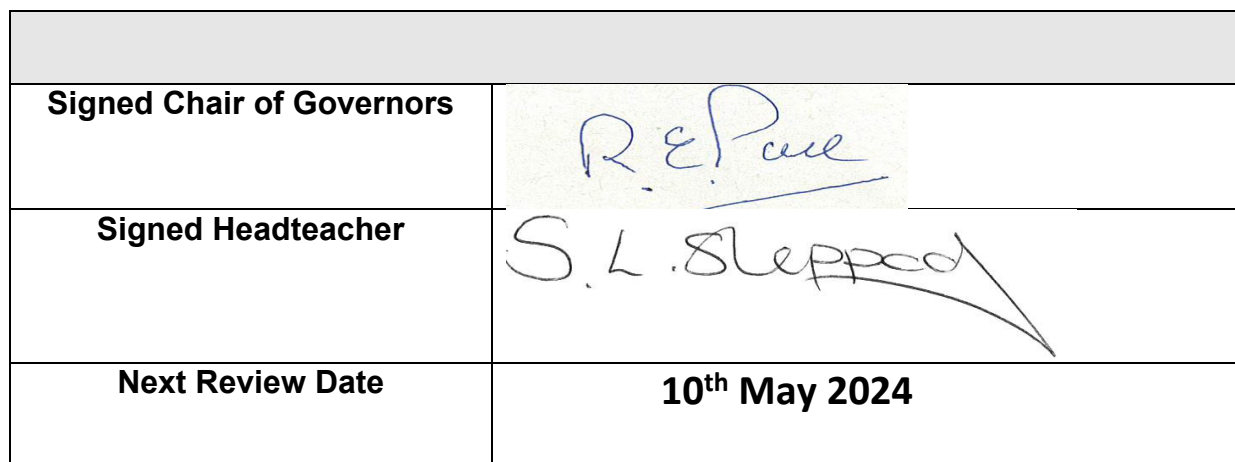 Signed Chair of Governors
R.E.
Signed Headteacher
S.L.
Next Review Date
10th May 2024